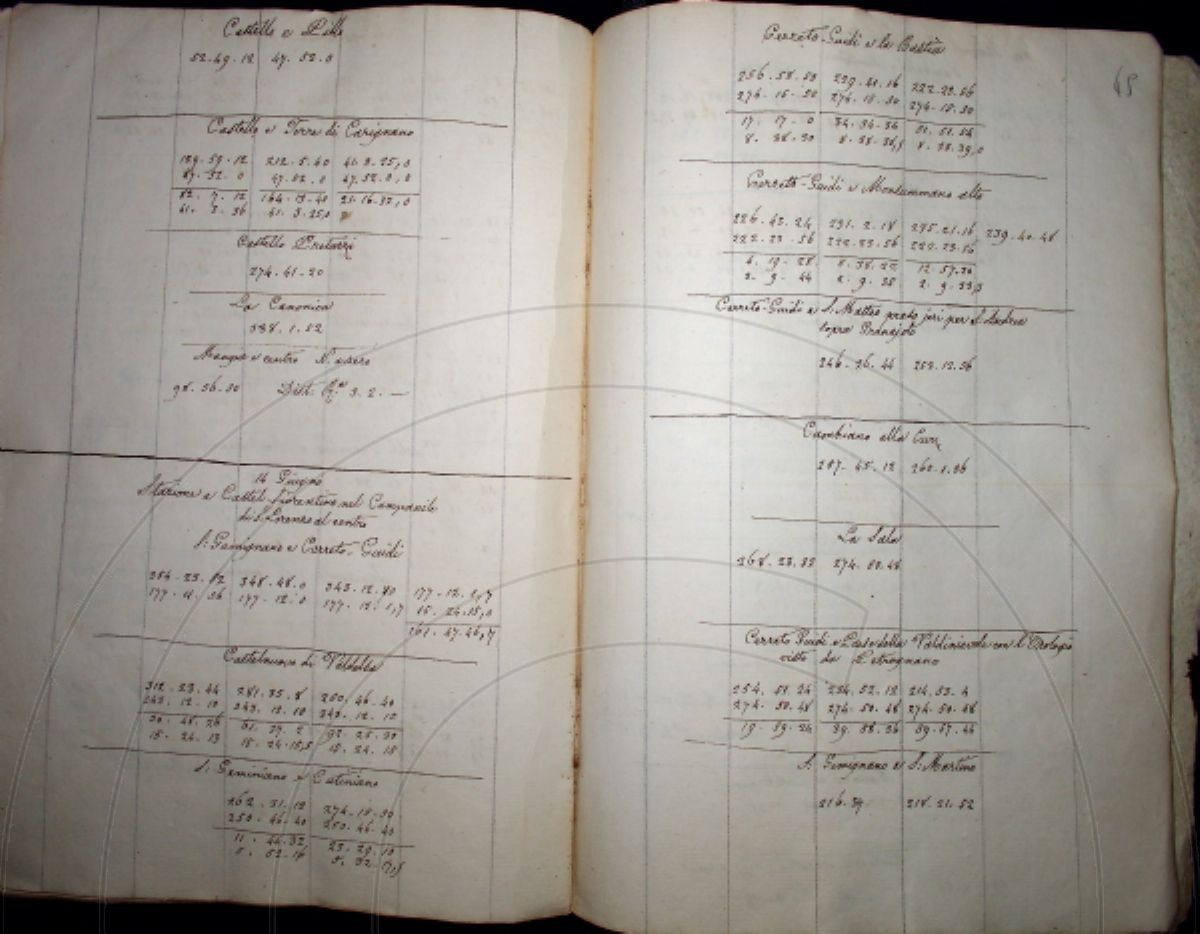 Castello e Pillo
52.49.12 47.52.0
Castello e Torre di Carignano
129.59.12 212.5.40 41.3.25,0
47.52.0 47.52.0 47.52.0,0
82.7.12 164.13.40
41.3.36 41.3.25,0
Castello Pretorzi
274.41.20
La Canonica
338.1.52
e centro
98.56.50 Dist. 3.2.—
14 Giugno
Stazione a Castel-fiorentino nel Campanile
di S. Lorenzo al centro
S: Gemignano e Cerreto-Guidi
354.23.52 348.48.0 343.12.10 177.12.1,7
177.11.56 177.12.0 177.12.1,7 15.24.15,0
161.47.46,7
Castelnuovo di Valdelsa
312.23.44 281.35.8 250.46.40
343.12.10 343.12.10 343.12.10
30.48.26 61.37.2 92.25.30
15.24.13 15.24.15,5 15.24.15
S: Geminiano e Castiniano
262.31.12 274.15.50
250.46.40 250.46.40
11.44.32 23.29.10
5.52.16 5.52.
65
Cerreto-Guidi e la Bastia
256.58.50 239.41.16 222.23.56
274.15.50 274.15.50 274.15.50
17.17.0 34.34.34 51.51.54
8.38.30 8.38.38,5 8.38.39,0
Cerreto-Guidi e Monsummano alto
226.43.24 231.2.18 235.21.16 239.40.48
222.23.56 222.23.56 222.23.56
4.19.28 8.38.22 12.57.20
2.9.44 2.9.35 2.9.33,3
Cerreto-Guidi e S: Matteo per S. Andrea
sopra
246.26.44 252.12.56
Cambiano alla
257.45.12 260.1.36
La Sala
268.23.32 274.50.48
Cerreto Guidi e della Valdinievole con l'Orologio
visto da
254.51.24 234.52.12 214.53.4
274.50.48 274.50.48 274.50.48
19.59.24 39.58.36 59.57.44
S. Gimignano e S: Martino
216.37. 218.21.52